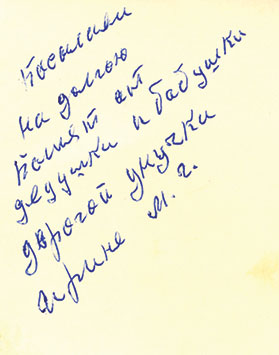 Посылаем
на долгою
память от
дедушки и бабушки
дорогой унучки
Ирине М. г.